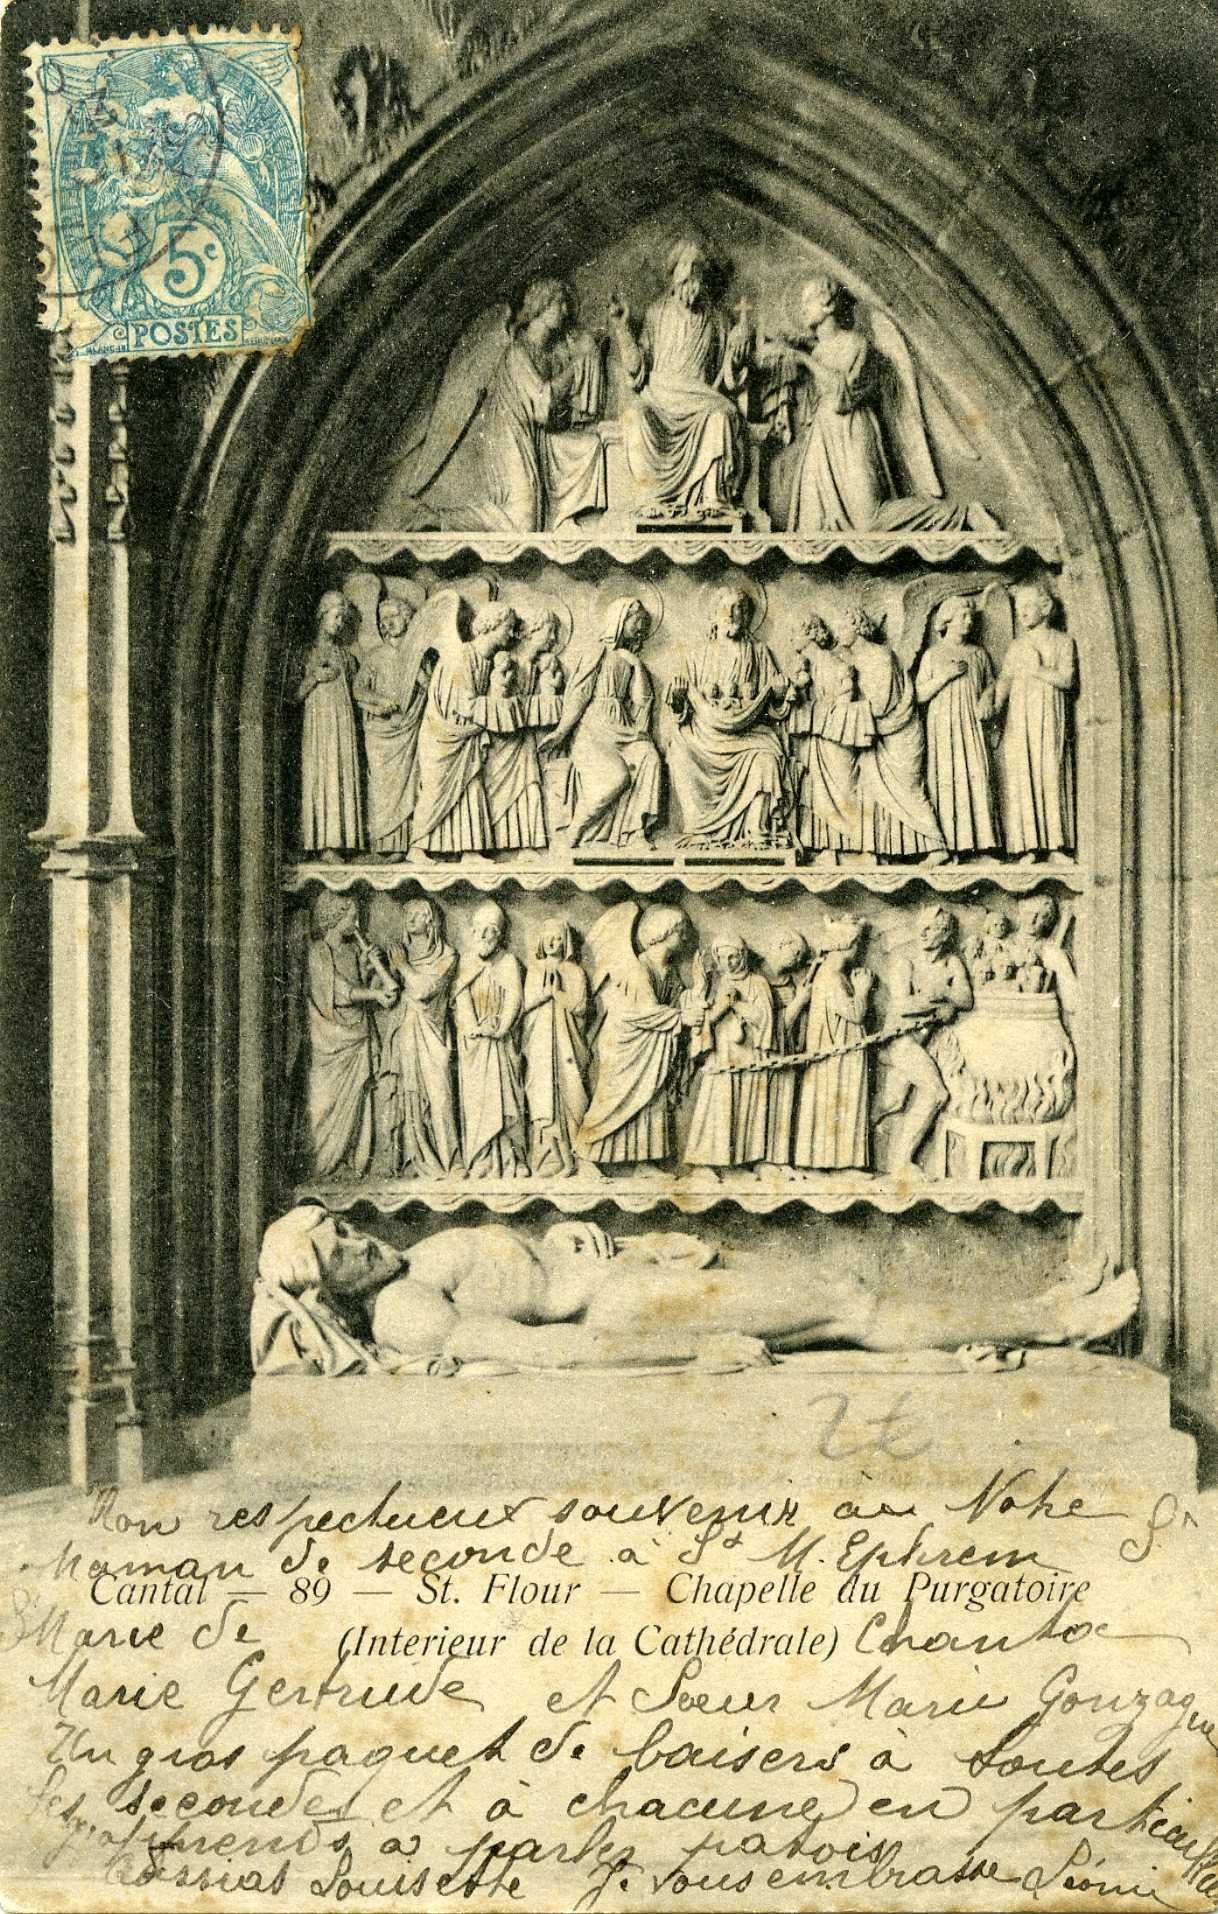 5c
POSTES
Mon respectueux souvenir à Notre
Maman de seconde à St M. Ephrem Sr
Cantal — 89 — St. Flour — Chapelle du Purgatoire
Marie de
(Interieur de la Cathédrale)
Marie Gertrude et Sœur Marie Gonzague
Un gros paquet de baisers à toutes
les secondes et à chacune en particulier
apprends a parler patois
Louisette Je vous embrasse Léonie